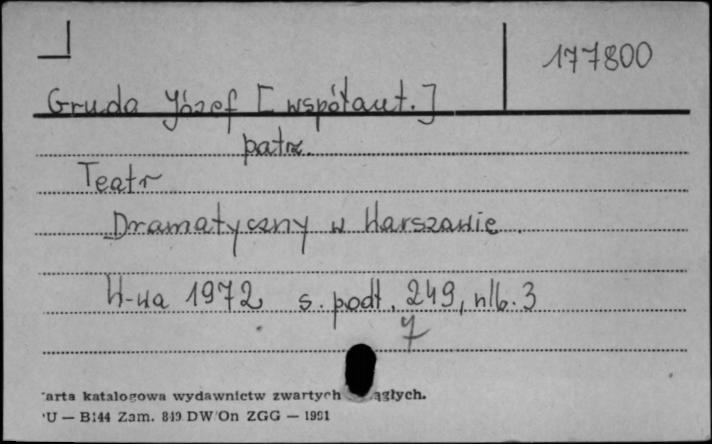 177800
Gruda Józef [współaut.]
patrz.
Teatr
Dramatyczny w Warszawie.
W-wa 1972 s. podł. 249, nlb. 3
7
arta katalogowa wydawnictw zwartych ągłych.
U — B144 Zam. 849 DW/On ZGG — 1991